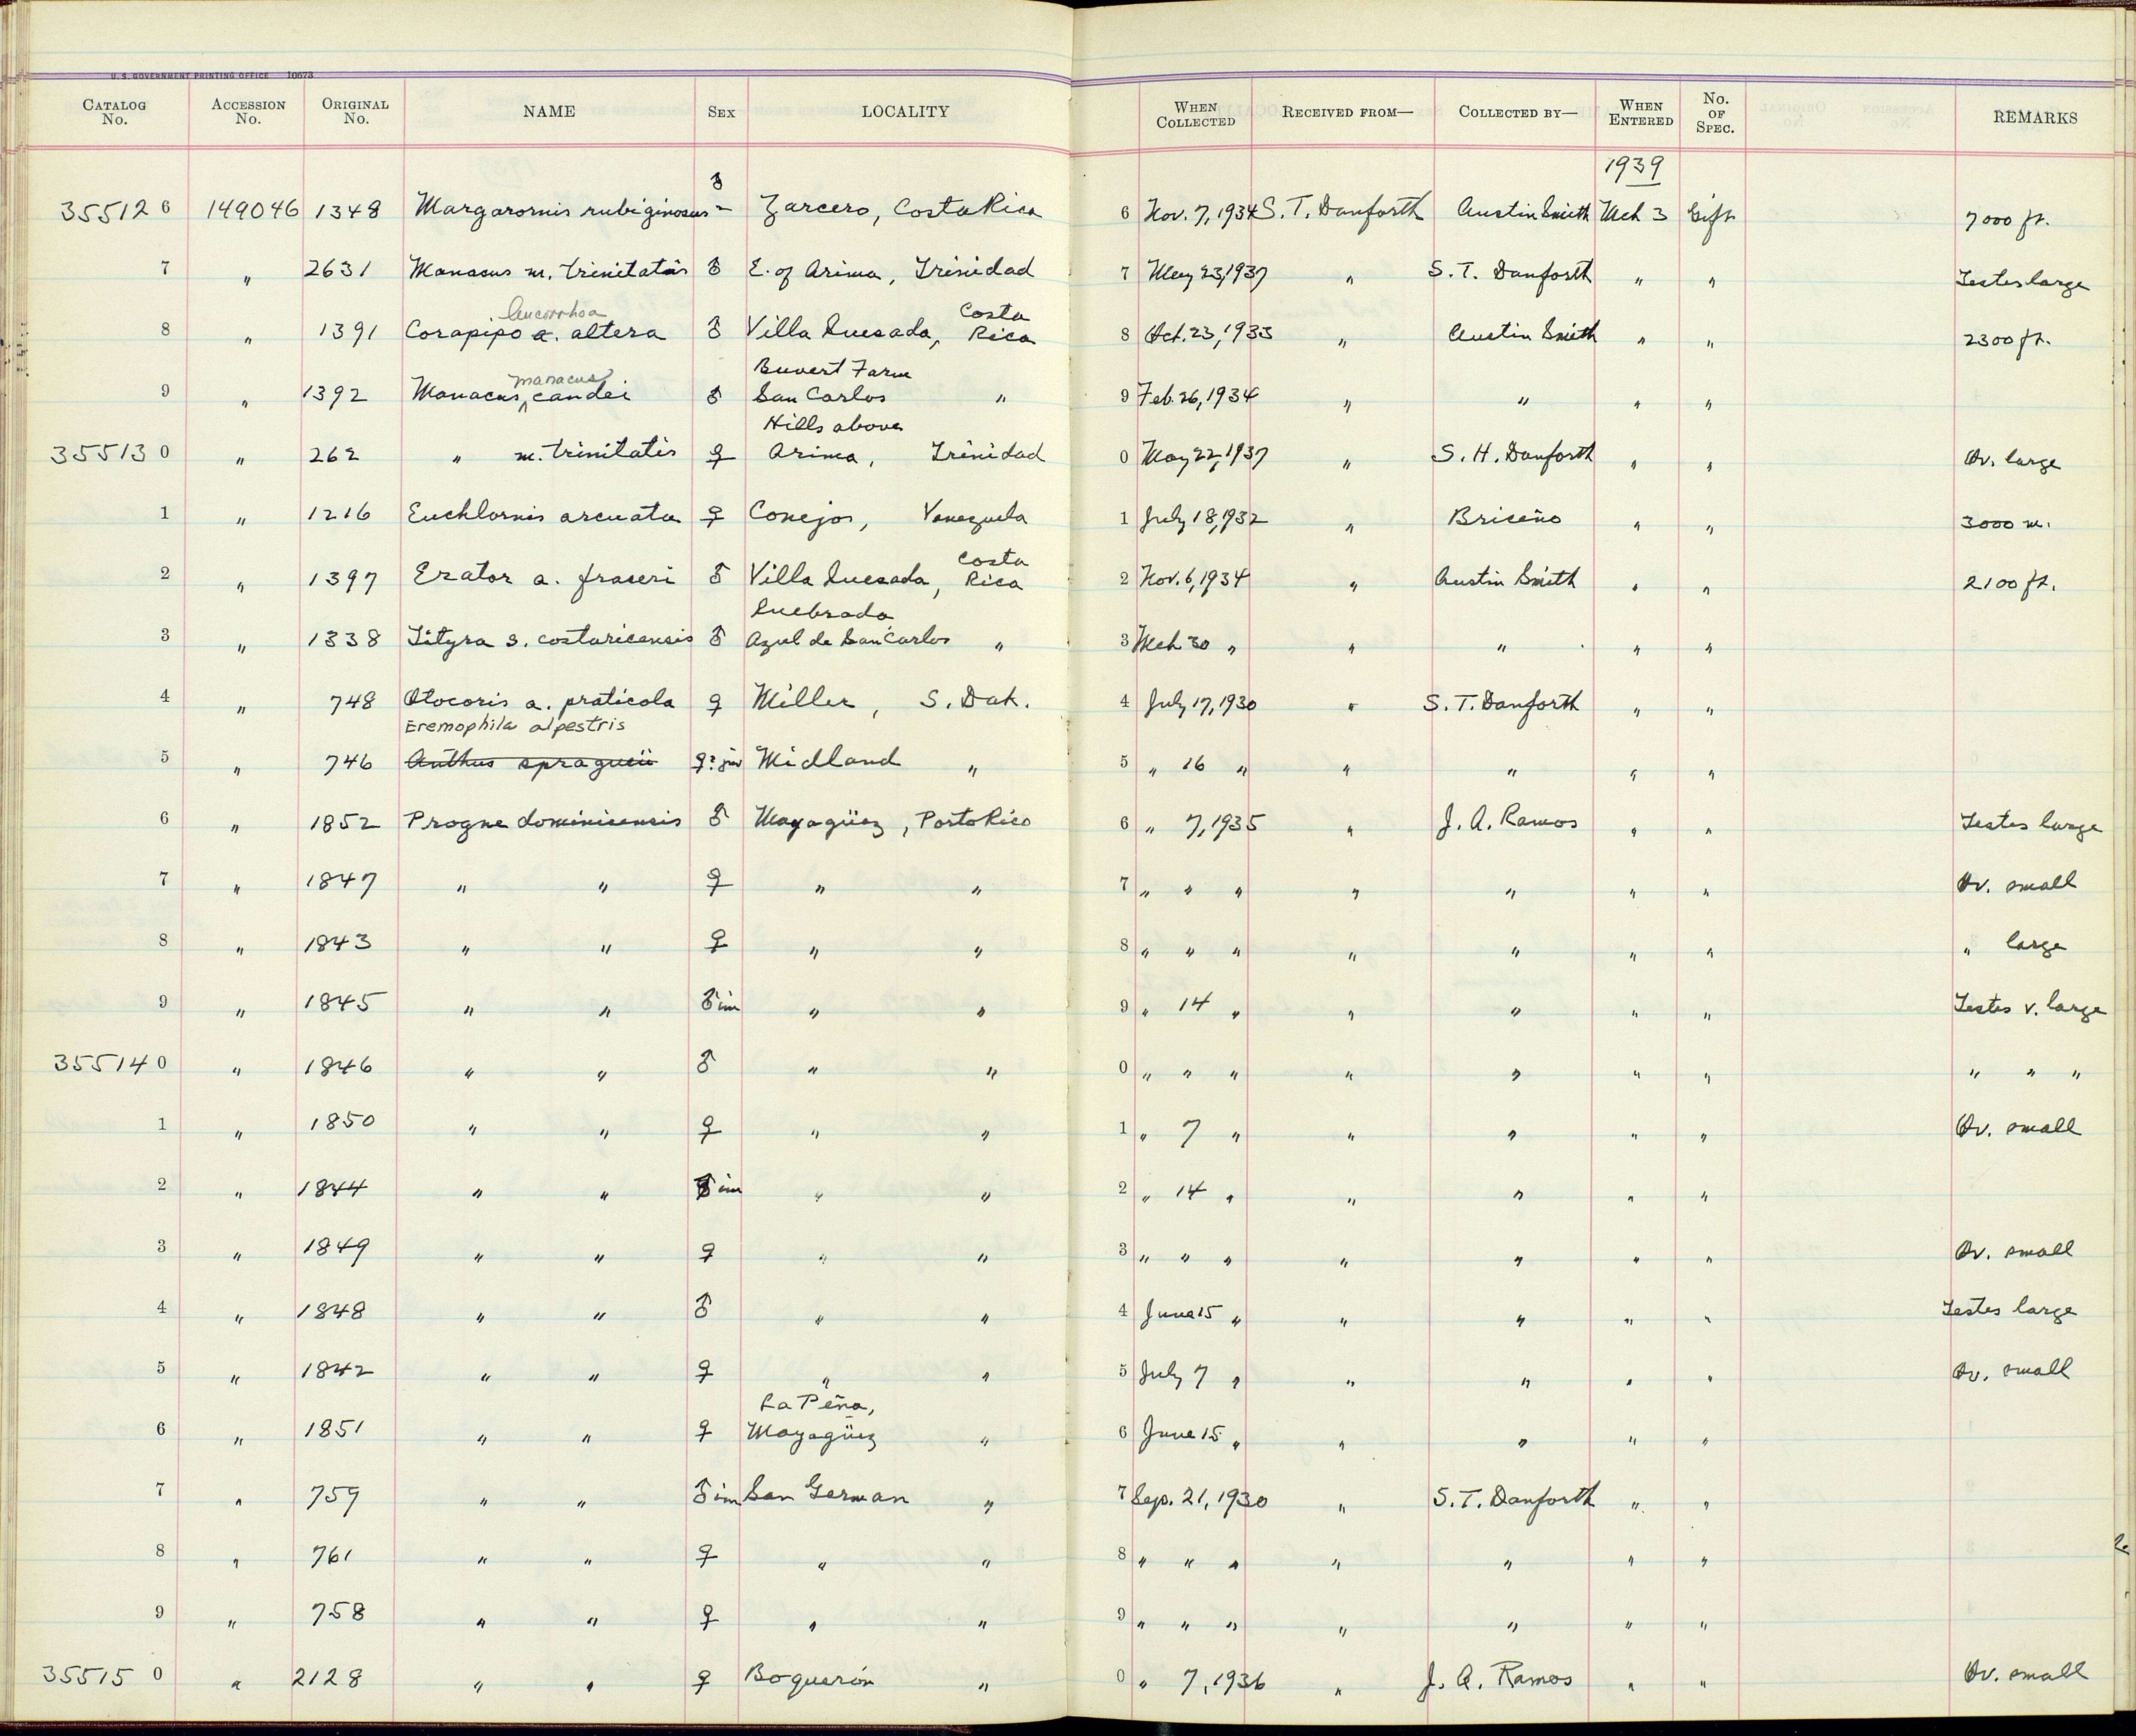 U. S. GOVERNMENT PRINTING OFFICE 10673
CATALOG No. ACCESSION No. ORIGINAL No. NAME SEX LOCALITY WHEN COLLECTED RECEIVED FROM— COLLECTED BY— WHEN ENTERED No. OF SPEC. REMARKS
1939
35512 6 149046 1348 Margarornis rubiginosus ♂ Zarcero, Costa Rica 6 Nov. 7, 1934 S. T. Danforth Austin Smith Mch 3 Gift 7000 ft.
7 " 2631 Manacus m. trinitatis ♂ E. of Arima, Trinidad 7 May 23, 1937 " S. T. Danforth " " Testes large
leucorrhoa Costa
8 " 1391 Corapipo a. altera ♂ Villa Quesada, Rica 8 Oct. 23, 1933 " Austin Smith " " 2300 ft.
manacus Buvert Farm
9 " 1392 Manacus ^ candei ♂ San Carlos " 9 Feb. 26, 1934 " " " "
Hills above
35513 0 " 262 " m. trinitatis ♀ Arima, Trinidad 0 May 22, 1937 " S. H. Danforth " " Ov. large
1 " 1216 Euchlornis arcuata ♀ Conejos, Venezuela 1 July 18, 1932 " Briceño " " 3000 m.
Costa
2 " 1397 Erator a. fraseri ♂ Villa Quesada, Rica 2 Nov. 6, 1934 " Austin Smith " " 2100 ft.
Quebrada
3 " 1338 Tityra s. costaricensis ♂ Azul de San Carlos " 3 Mch 30 " " " " "
4 " 748 Otocoris a. praticola ♀ Miller, S. Dak. 4 July 17, 1930 " S. T. Danforth " "
Eremophila alpestris
5 " 746 Anthus spragueii ♀? juv Midland " 5 " 16 " " " " "
6 " 1852 Progne dominicensis ♂ Mayagüez, Porto Rico 6 " 7, 1935 " J. A. Ramos " " Testes large
7 " 1847 " " ♀ " " 7 " " " " " " " Ov. small
8 " 1843 " " ♀ " " 8 " " " " " " " " large
9 " 1845 " " ♂ im " " 9 " 14 " " " " " Testes v. large
35514 0 " 1846 " " ♂ " " 0 " " " " " " " " " "
1 " 1850 " " ♀ " " 1 " 7 " " " " " Ov. small
2 " 1844 " " ♂ im " " 2 " 14 " " " " "
3 " 1849 " " ♀ " " 3 " " " " " " " Ov. small
4 " 1848 " " ♂ " " 4 June 15 " " " " " Testes large
5 " 1842 " " ♀ " " 5 July 7 " " " " " Ov. small
La Peña,
6 " 1851 " " ♀ Mayagüez " 6 June 15 " " " " "
7 " 759 " " ♂ im San German " 7 Sep. 21, 1930 " S. T. Danforth " "
8 " 761 " " ♀ " " 8 " " " " " " "
9 " 758 " " ♀ " " 9 " " " " " " "
35515 0 " 2128 " " ♀ Boquerón " 0 " 7, 1936 " J. A. Ramos " " Ov. small